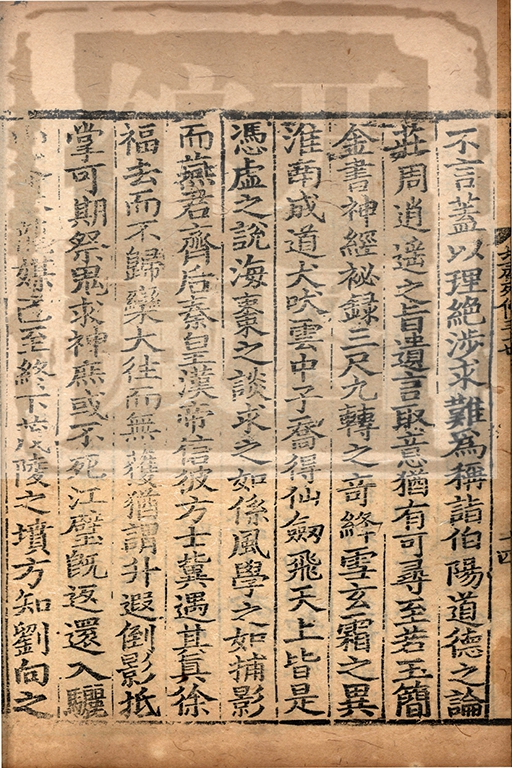 不言蓋以理絶涉求難爲稱詣伯陽道德之論
莊周逍遥之旨遺言取意猶有可尋至若玉簡
金書神經祕録三尺九轉之竒絳雪玄霜之異
淮南成道犬吠雲中子喬得仙劒飛天上皆是
憑虛之說海棗之談求之如係風學之如捕影
而燕君齊后秦皇漢帝信彼方士冀遇其真徐
福去而不歸欒大往而無獲猶謂升遐倒影抵
掌可期祭鬼求神庶或不死江璧旣返還入驪
龍媒已至終下茂陵之墳方知劉向之